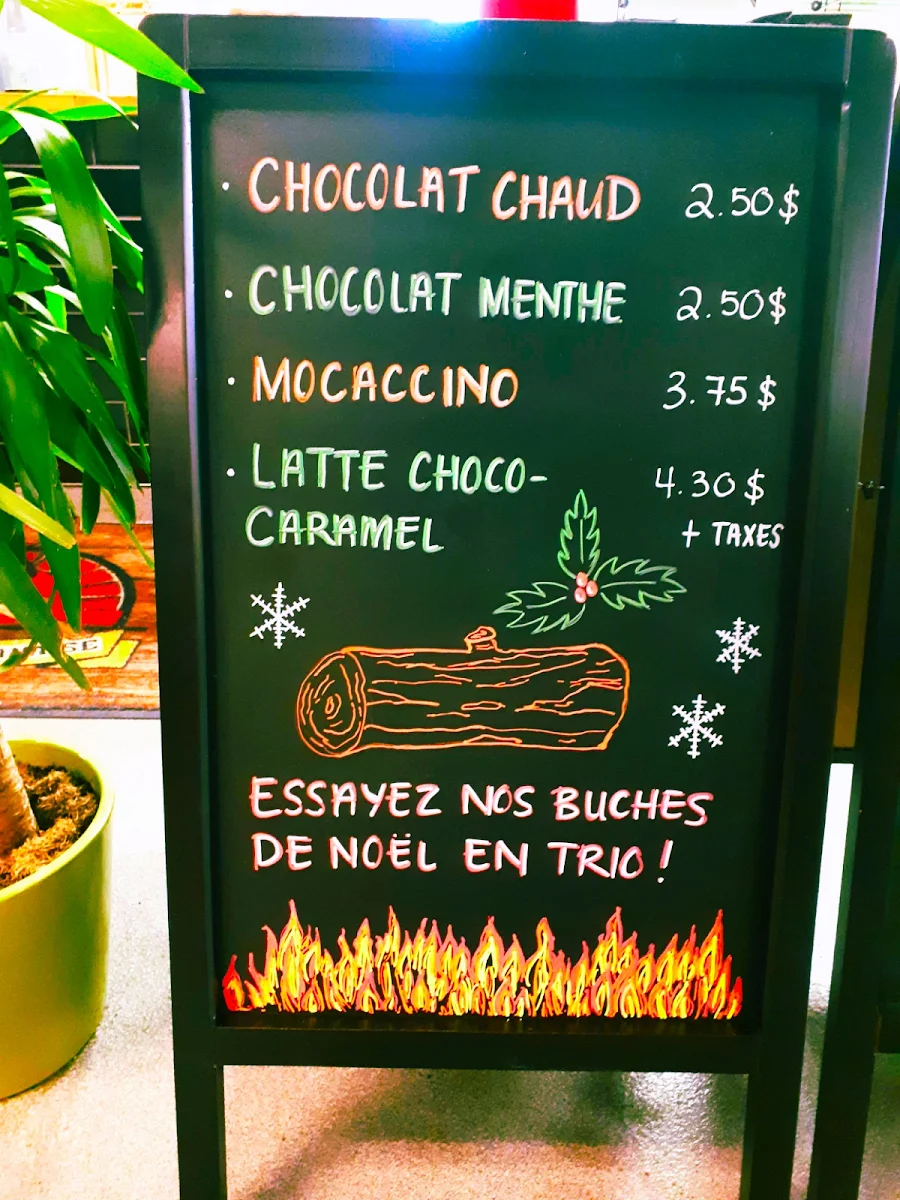 · CHOCOLAT CHAUD 2.50$
· CHOCOLAT MENTHE 2.50$
· MOCACCINO 3.75$
· LATTE CHOCO- 4.30$
CARAMEL + TAXES
ESSAYEZ NOS BUCHES
DE NOËL EN TRIO !